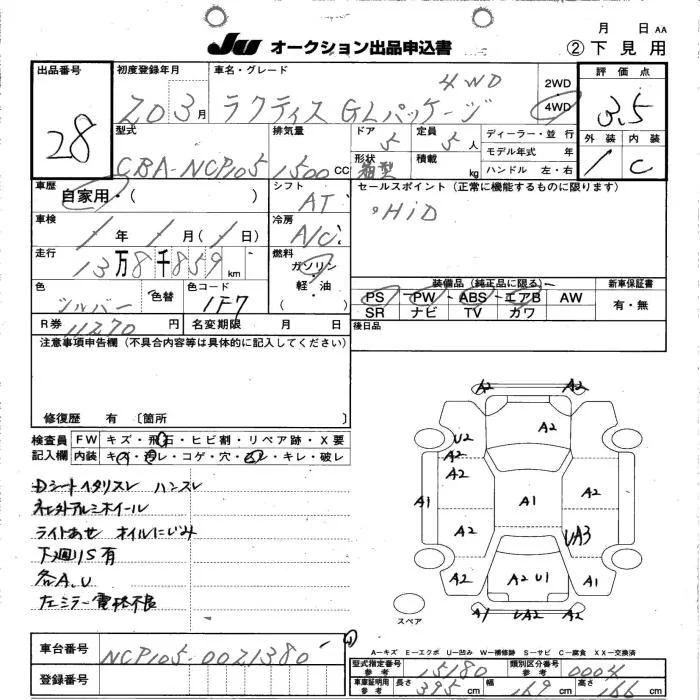 月 日 AA
JU オークション出品申込書
② 下見用
出品番号
28
初度登録年月
20 3月
車名・グレード
4WD
ラクティス GLパッケージ
2WD
4WD
評価点
3.5
外装 内装
1 C
型式
CBA-NCP105
排気量
1500CC
ドア
5
定員
5人
形状
箱型
積載
kg
ディーラー・並行
モデル年式 年
ハンドル 左・右
車歴
自家用・( )
シフト
AT
セールスポイント(正常に機能するものに限ります)
・HiD
車検
1年 1月(1日)
冷房
AC
走行
13万8千859km
燃料
ガソリン
・
軽・油
( )
色
シルバー
色替
色コード
1F7
装備品(純正品に限る)
PS・PW・ABS・エアB AW
SR ナビ TV カワ
新車保証書
有・無
R券
11270円
名変期限 月 日
後日品
注意事項申告欄(不具合内容等は具体的に記入してください)
修復歴 有 〔箇所 〕
検査員
記入欄
FW キズ・飛石・ヒビ割・リペア跡・X要
内装 キズ・汚レ・コゲ・穴・スレ・キレ・破レ
Dシートイタスレ ハンスレ
社外アルミホイール
ライトあせ オイルにじみ
下廻りS有
各A.U
左ミラー電格不良
A2 A2
A2
U2
A2
A2
A2
A1
A1
A2
A2
UA3
A2
A2 U1
A1
A1 UA2 A2
スペア
A-キズ E-エクボ U-凹み W-補修跡 S-サビ C-腐食 XX-交換済
車台番号
NCP105-0021380
登録番号
型式指定番号
参考
15180
類別区分番号
参考
0004
車庫証明用
参考
長さ
395cm
幅
169cm
高さ
166cm